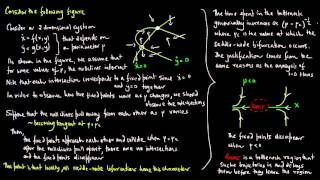 Consider the following figure.
Consider a 2-dimensional system
ẋ = f(x,y) } that depends on
ẏ = g(x,y) } a parameter μ
As shown in the figure, we assume that
for some values of μ, the nullclines intersect
Note that each intersection corresponds to a fixed point since ẋ = 0
and ẏ = 0 together
In order to observe, how the fixed points move as μ changes, we should
observe the intersections
Suppose that the nullclines pull away from each other as μ varies
~ becoming tangent at μ = μc
Then,
the fixed points approach each other and collide when μ = μc
after the nullclines pull apart, there are no intersections
and the fixed points disappear
The point is that locally all saddle-node bifurcations have this character
ẋ = 0
ẏ = 0
The time spent in the bottleneck
generically increases as (μ - μc)^-1/2
where μc is the value at which the
saddle-node bifurcation occurs.
The justification comes from the
same reasons as the analysis of
1-D flows
μ < 0
x
The fixed points disappear
when μ < 0
is a bottleneck region that
sucks trajectories in and delays
them before they leave the region